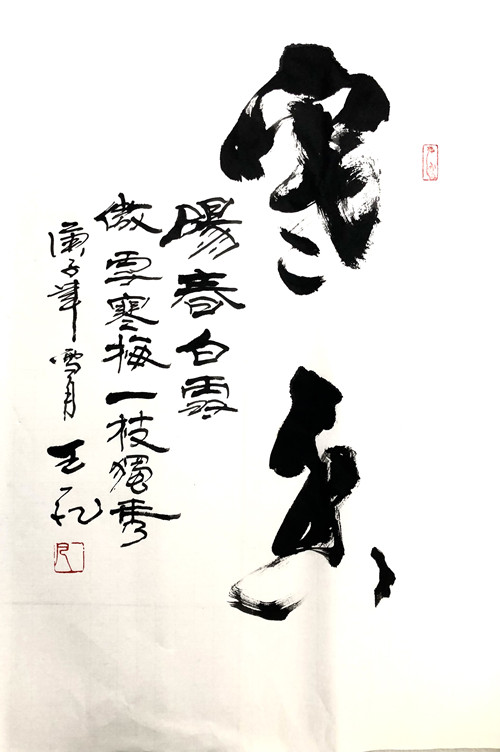 寒
陽春白雪
傲雪寒梅一枝獨秀
庚子年雪月王